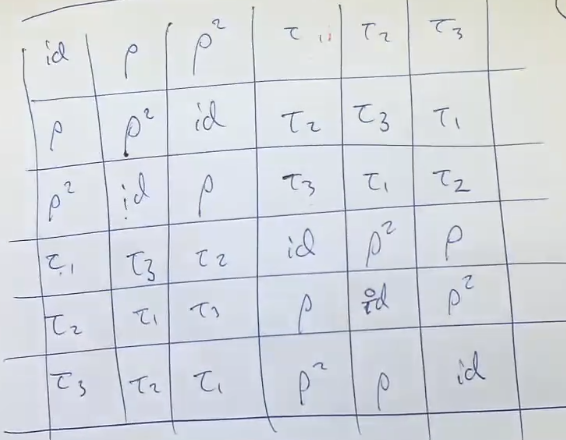 id ρ ρ² τ₁ τ₂ τ₃
ρ ρ² id τ₂ τ₃ τ₁
ρ² id ρ τ₃ τ₁ τ₂
τ₁ τ₃ τ₂ id ρ² ρ
τ₂ τ₁ τ₃ ρ id ρ²
τ₃ τ₂ τ₁ ρ² ρ id